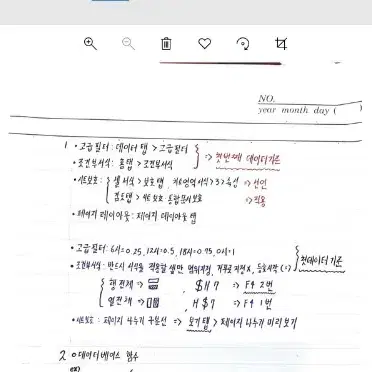 NO.
year month day ( )
1 • 고급필터 : 데이터 탭 > 고급필터
• 조건부서식 : 홈탭 > 조건부서식
=> 첫번째 데이터기준
• 시트보호 : 셀 서식 > 보호 탭, 차트영역서식 > 3 > 속성 => 선언
검토탭 > 시트 보호·통합문서보호 => 적용
• 페이지 레이아웃 : 페이지 레이아웃 탭
• 고급필터 : 6시=0.25, 12시=0.5, 18시=0.75, 0시=1
• 조건부서식 : 반드시 서식을 적용할 셀만 범위지정, 등호시작 (=)
첫데이터기준
행 전체 => , $H7 => F4 2번
열전체 => , H$7 => F4 1번
• 시트보호 : 페이지 나누기 구분선 => 보기 탭 > 페이지 나누기 미리 보기
2 ㅇ데이터베이스 함수